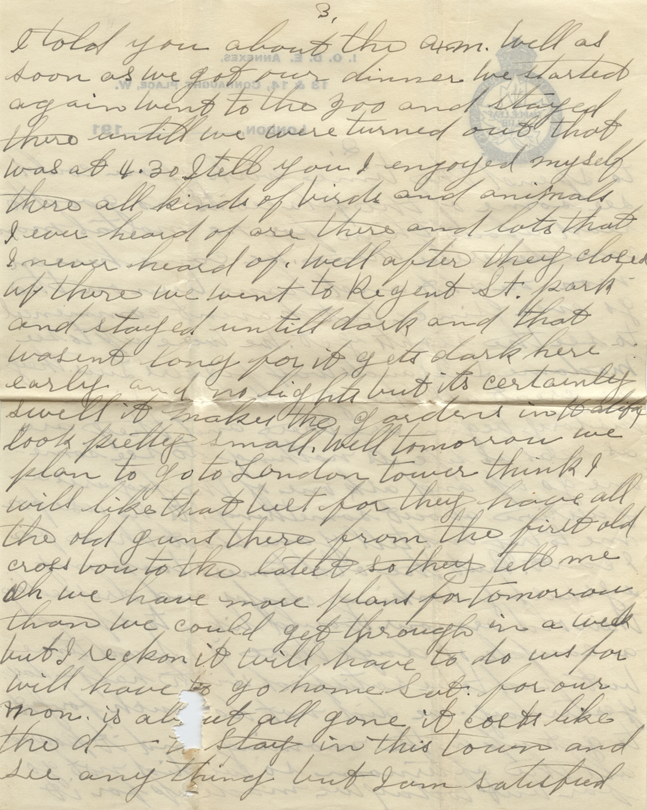 3,
I told you about the a.m. Well as
soon as we got our dinner we started
again went to the zoo and stayed
there untill we were turned out that
was at 4.30 I tell you I enjoyed myself
there all kinds of birds and animals
I ever heard of are there and lots that
I never heard of. Well after they closed
up there we went to Regent St. park
and stayed untill dark and that
wasent long for it gets dark here
early and no lights but its certainly
swell it makes the gardens in
look pretty small. Well tomorrow we
plan to go to London tower think I
will like that best for they have all
the old guns there from the first old
cross bow to the latest so they tell me
Oh we have more plans for tomorrow
than we could get through in a week
but I reckon it will have to do us for
will have to go home Sat. for our
mon. is about all gone it costs like
the d— to stay in this town and
see any thing but I am satisfied
I. O. D. E. ANNEXES.
13 & 14, CONNAUGHT PLACE, W.
LONDON
191